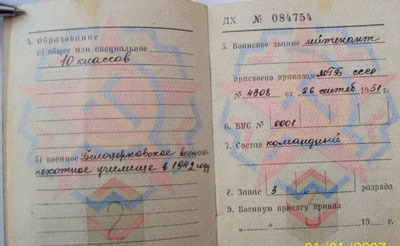 4. Образование
а) общее или специальное
10 классов
б) военное Белоцерковское военно
пехотное училище в 1942 году
ДХ № 084754
5. Воинское звание лейтенант
присвоено приказом МГБ СССР
№ 4308 от 26 сентяб 1951 г.
6. ВУС № 0001
7. Состав командный
8. Запас 3 разряда
9. Военную присягу принял
" " 19 г.
01/01/2007